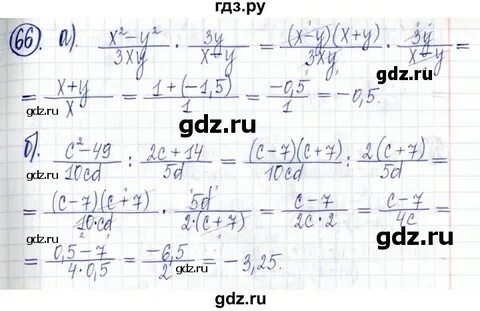 гдз.ру
66. а). (x² − y²)/(3xy) · 3y/(x−y) = (x−y)(x+y)/(3xy) · 3y/(x−y) =
= (x+y)/x = (1+(−1,5))/1 = −0,5/1 = −0,5.
gdz.ru gdz.ru
б). (c²−49)/(10cd) : (2c+14)/(5d) = (c−7)(c+7)/(10cd) : 2(c+7)/(5d) =
gdz.ru gdz.ru
= (c−7)(c+7)/(10cd) · 5d/(2·(c+7)) = (c−7)/(2c·2) = (c−7)/(4c) =
gdz.ru
= (0,5−7)/(4·0,5) = −6,5/2 = −3,25.
gdz.ru gdz.ru